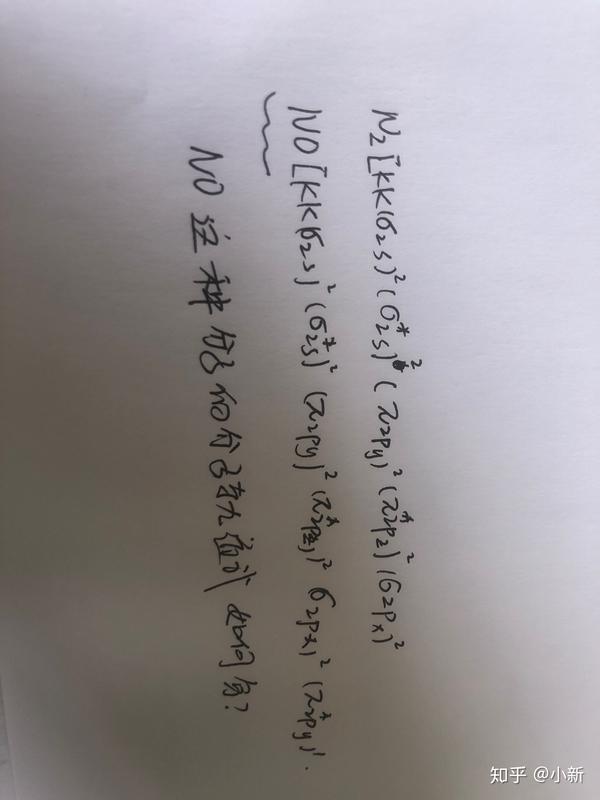 N₂[KK(σ2s)²(σ*2s)²(π2py)²(π*2pz)²(σ2px)²
NO[KK(σ2s)²(σ*2s)²(π2py)²(π*2pz)²σ2px)²(π*2py)¹.
NO这种分子的分子轨道式如何写?
知乎 @小新